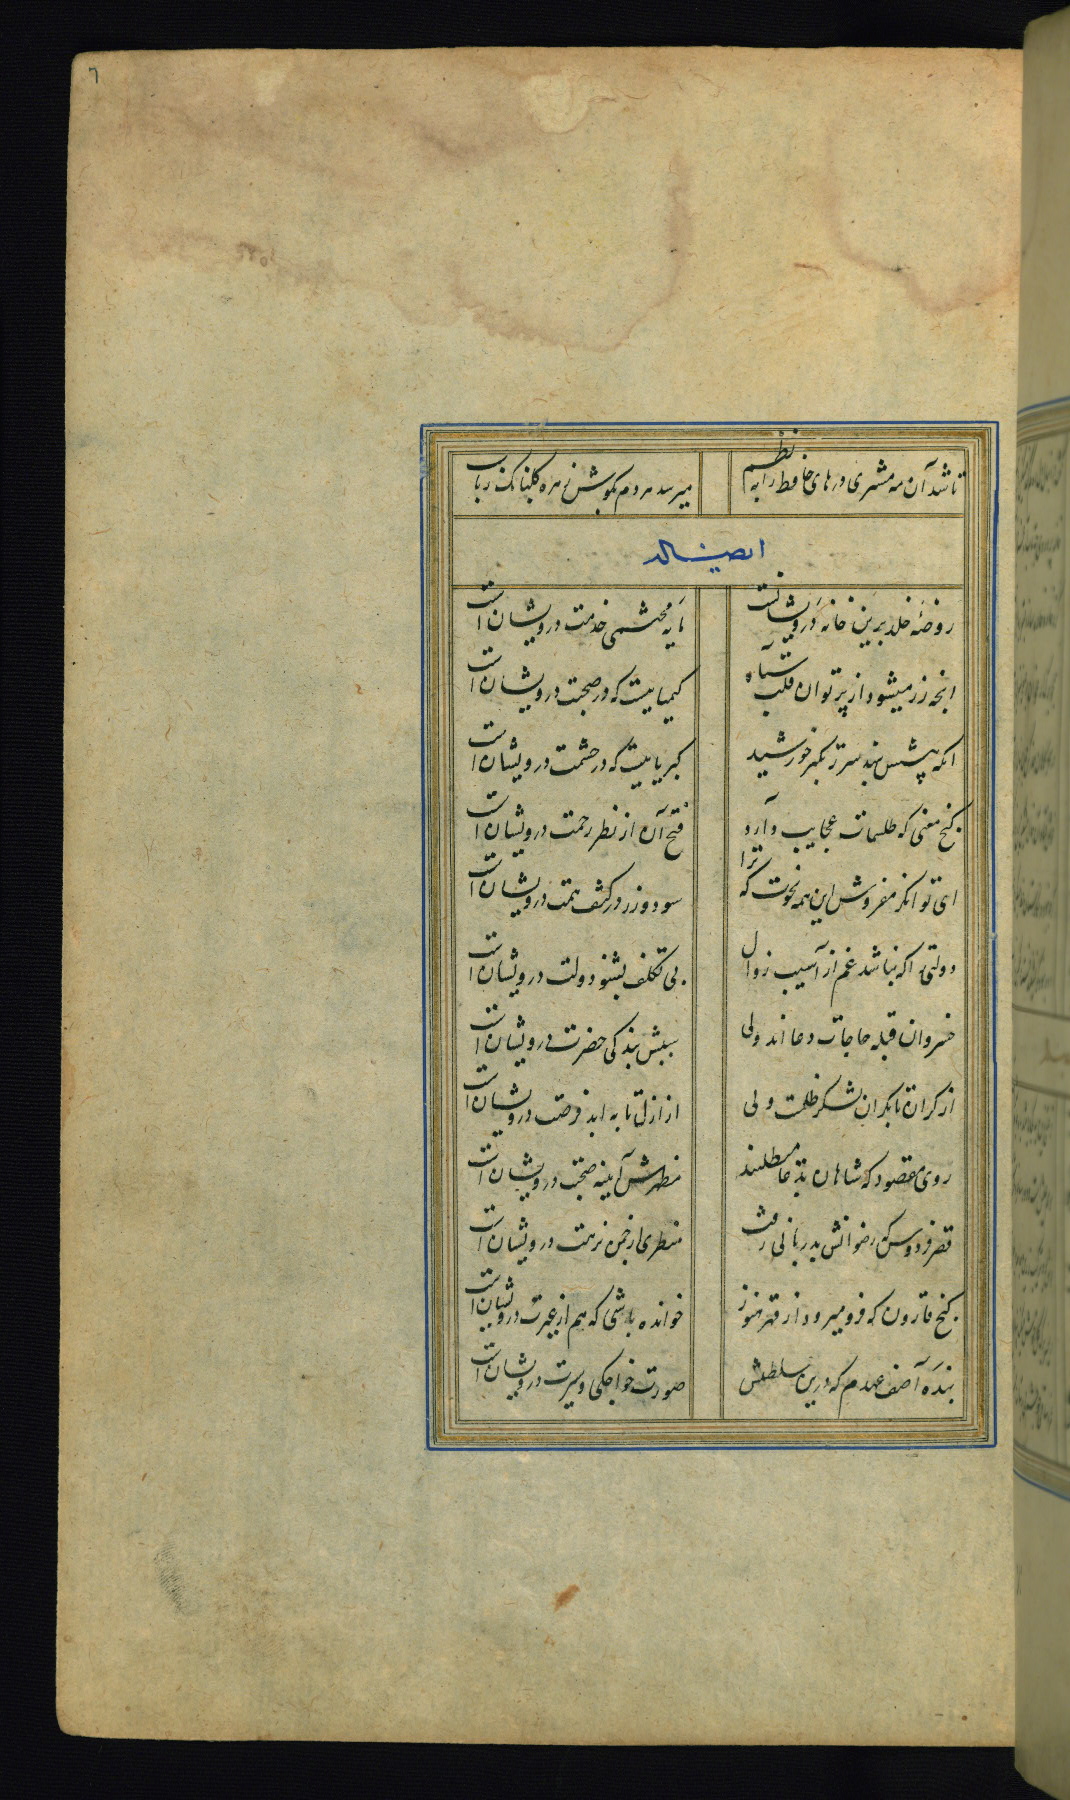 ٦
تا شد آن مه مشتری درهای حافظ را به نظم
میرسد هر دم بگوش زهره گلبانک رباب
ایضا له
روضهٔ خلد برین خانه درویشانست
مایه محتشمی خدمت درویشان است
انچه زر میشود از پرتو ان قلب سیاه
کیمیاییست که در صحبت درویشان است
انکه پیشش بنهد سر تکبر خورشید
کبریاییست که در حشمت درویشان است
کنج معنی که طلسمات عجایب دارد
فتح آن از نظر رحمت درویشان است
ای توانکر مفروش این همه نخوت که ترا
سر و زر در کنف همت درویشان است
دولتی را که نباشد غم از آسیب زوال
بی تکلف بشنو دولت درویشان است
خسروان قبله حاجات دعا اند ولی
سببش بندکی حضرت درویشان است
از کران تا بکران لشکر ظلمت ولی
از ازل تا به ابد فرصت درویشان است
روی مقصود که شاهان بدعا میطلبند
مظهرش آینه صحبت درویشان است
قصر فردوس که رضوانش بدربانی رفت
منظری از چمن نزهت درویشان است
کنج قارون که فرو میرود از قهر هنوز
خوانده باشی که هم از غیرت درویشان است
بنده آصف عهدم که درین سلطنتش
صورت خواجکی و سیرت درویشان است